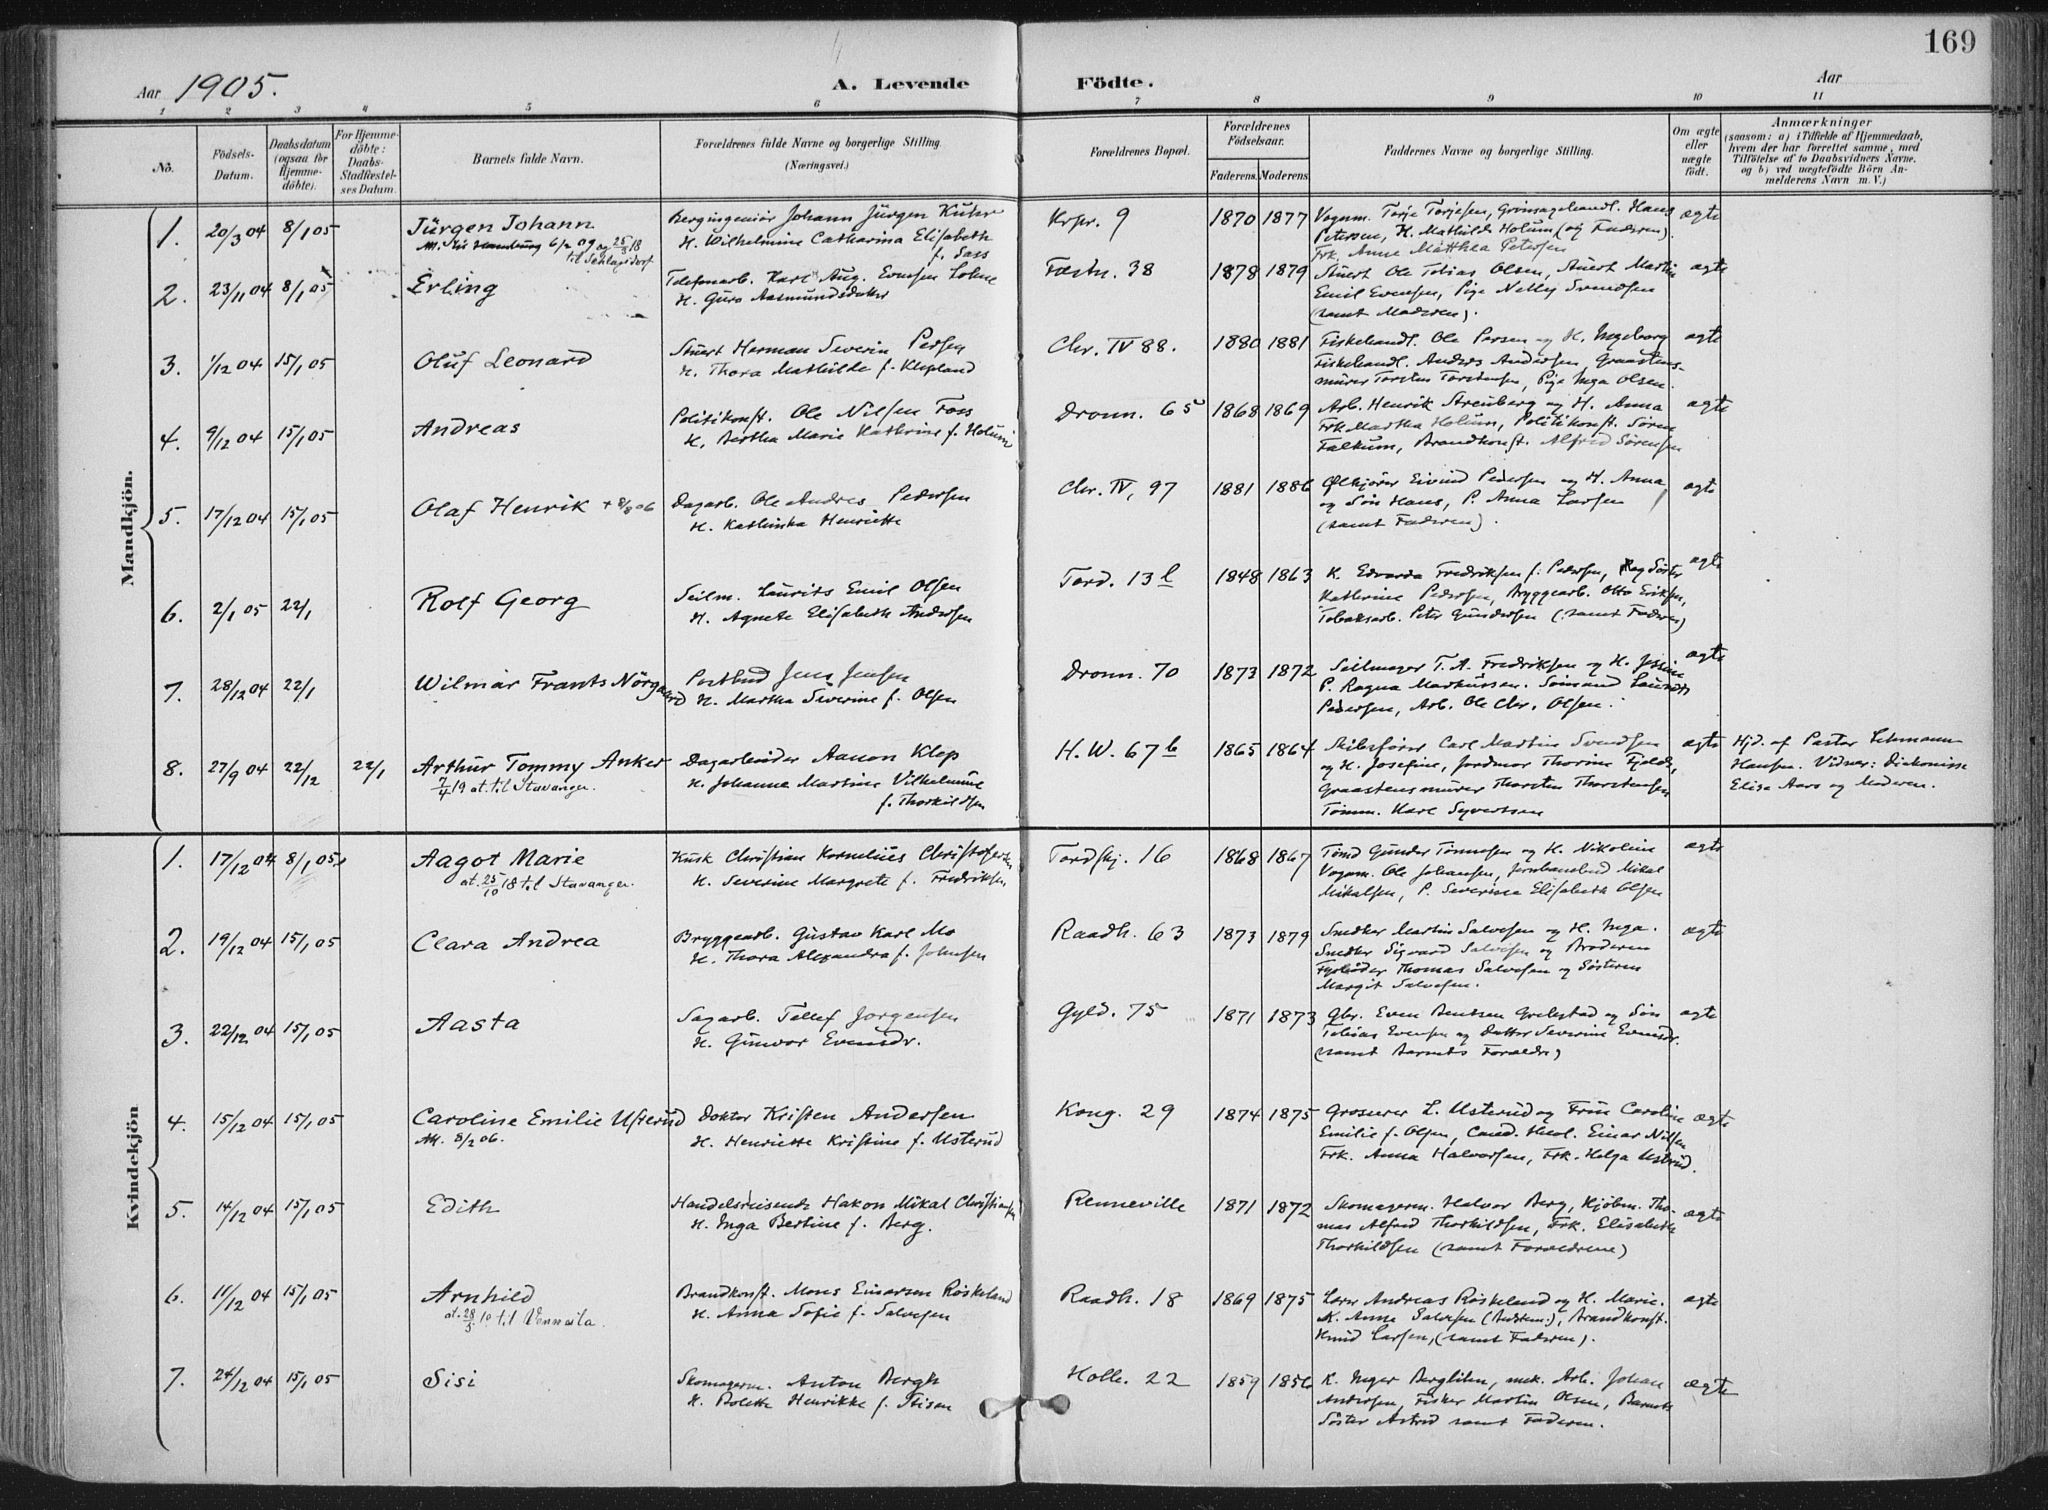 169
Aar 1905. A. Levende Födte. Aar
1 2 3 4 5 6 7 8 9 10 11
No. Födsels-Datum. Daabsdatum (ogsaa for Hjemme-döbte). For Hjemme-döbte: Daabs-Stadfæstel-ses Datum. Barnets fulde Navn. Forældrenes fulde Navne og borgerlige Stilling (Næringsvei.) Forældrenes Bopæl. Forældrenes Födselsaar. Faderens. Moderens Faddernes Navne og borgerlige Stilling. Om ægte eller uægte födt. Anmærkninger (saasom: a) i Tilfælde af Hjemmedaab, hvem der har forrettet samme, med Tilföielse af to Daabsvidners Navne, og b) ved uægtefödte Börn An-melderens Navn m. V.)
Mandkjön.
1. 20/3 04 8/1 05 Jürgen Johann Bergingeniör Johann Jürgen Kuhr Krpr. 9 1870 1877 Vognm. Torje Torjesen, Grönsagshandl. Hans ægte
H. Wilhelmine Catharina Elisabeth Petersen, H. Mathilde Holum (og Faderen).
f. Sass Frk. Anne Matthea Petersen
2. 23/11 04 8/1 05 Erling Telefonarb. Karl Aug. Evensen Lohne Fæstn. 38 1878 1879 Stuert Ole Tobias Olsen, Stuert Martin ægte
H. Guro Aasmundsdatter Emil Evensen, Pige Nelly Svendsen
(samt Moderen).
3. 1/12 04 15/1 05 Oluf Leonard Stuert Herman Severin Persen Chr. IV 88. 1880 1881 Fiskehandl. Ole Persen og H. Ingeborg ægte
H. Thora Mathilde f. Klepland Fiskehandl. Andres Andersen, Graastens-
mürer Torsten Torstensen, Pige Inga Olsen.
4. 9/12 04 15/1 05 Andreas Politikonst. Ole Nilsen Foss Dronn. 65 1868 1869 Arb. Henrik Streuberg og H. Anna ægte
H. Bertha Marie Kathrine f. Holum Frk Martha Holum, Politikonst. Sören
Falkum, Brandkonst. Alfred Sörensen
5. 17/12 04 15/1 05 Olaf Henrik + 8/8 06 Dagarb. Ole Andres Pedersen Chr. IV, 97 1881 1886 Ölkjörer Eivind Pedersen og H. Anna ægte
H. Kathinka Henriette og Sön Hans, P. Anna Larsen
(samt Faderen).
6. 2/1 05 22/1 Rolf Georg Seilm. Laurits Emil Olsen Tord. 13 b 1848 1863 K. Edvarda Fredriksen f. Pedersen, og Söster ægte
H. Agnete Elisabeth Andersen Kathrine Pedersen, Bryggearb. Otto Eriksen,
Tobaksarb. Peter Gundersen (samt Faderen)
7. 28/12 04 22/1 Wilmar Frants Nörgaard Postbud Jens Jensen Dronn. 70 1873 1872 Seilmager T. A. Fredriksen og H. Jessine ægte
H. Martha Severine f. Olsen P. Ragna Markussen. Sömand Laurits
Pedersen, Arb. Ole Chr. Olsen.
8. 27/9 04 22/12 22/1 Arthur Tommy Anker Dagarbeider Aanon Klep H. W. 67 b 1865 1864 Skibsförer Carl Martin Svendsen ægte Hjd. af Pastor Lehmann
7/4 19 at. til Stavanger. H. Johanne Martine Vilhelmine og H. Josefine, Jordmor Thorine Fjelds, Hansen. Vidner: Diakonisse
f. Thorkildsen Graastensmürer Thorsten Thorstensen Elise Aars og Moderen.
Tömm. Karl Syvertsen
Kvindekjön
1. 17/12 04 8/1 05 Aagot Marie Kusk Christian Kornelius Christofersen Tordskj. 16 1868 1867 Tömd Gunder Tönnesen og H. Nikoline ægte
at. 25/10 18 til Stavanger. H. Severine Margrete f. Fredriksen Vognm. Ole Johansen, Jernbanebud Mikal
Mikalsen, P. Severine Elisabeth Olsen
2. 19/12 04 15/1 05 Clara Andrea Bryggearb. Gustav Karl Mo Raadh. 63 1873 1879 Snedker Martin Salvesen og H. Inga. ægte
H. Thora Alexandra f. Johnsen Snedker Sigvard Salvesen og Broderen
Fyrböder Thomas Salvesen og Sösteren
Margit Salvesen.
3. 22/12 04 15/1 05 Aasta Sagarb. Tellef Jorgensen Gyld. 75 1871 1873 Gbr. Even Bentsen Grebstad og Sön ægte
H. Gunvor Evensdr. Tobias Evensen og Datter Severine Evensdr.
(samt Barnets Forældre)
4. 15/12 04 15/1 05 Caroline Emilie Usterud Doktor Kristen Andersen Kong. 29 1874 1875 Grosserer L. Usterud og Frue Caroline ægte
Att. 8/2 06. H. Henriette Kristine f. Usterud Emilie f. Olsen, Cand. theol. Einar Nilsen
Frk. Anna Halvorsen, Frk. Helga Usterud.
5. 14/12 04 15/1 05 Edith Handelsreisende Hakon Mikal Christiansen Renneville 1871 1872 Skomagerm. Halvor Berg, Kjöbm. Tho- ægte
H. Inga Bertine f. Berg. mas Alfred Thorkildsen, Frk. Elisabeth
Thorkildsen (samt Forældrene)
6. 11/12 04 15/1 05 Arnhild Brandkonst. Mons Einarsen Röskeland Raadh. 18 1869 1875 Lærer Andreas Röskeland og H. Marie. ægte
at. 28/5 10 til Vennesla. H. Anna Sofie f. Salvesen K. Anne Salvesen (Andsten.), Brandkonst.
Knud Larsen, (samt Faderen).
7. 24/12 04 15/1 05 Sisi Skomagerm. Anton Bergh Holb. 22 1859 1856 K. Inger Berglihn, mek. Arb. Johan ægte
H. Bolette Henrikke f. Stisen Andersen, Fisker Martin Olsen, Barnets
Söster Astrid samt Faderen.